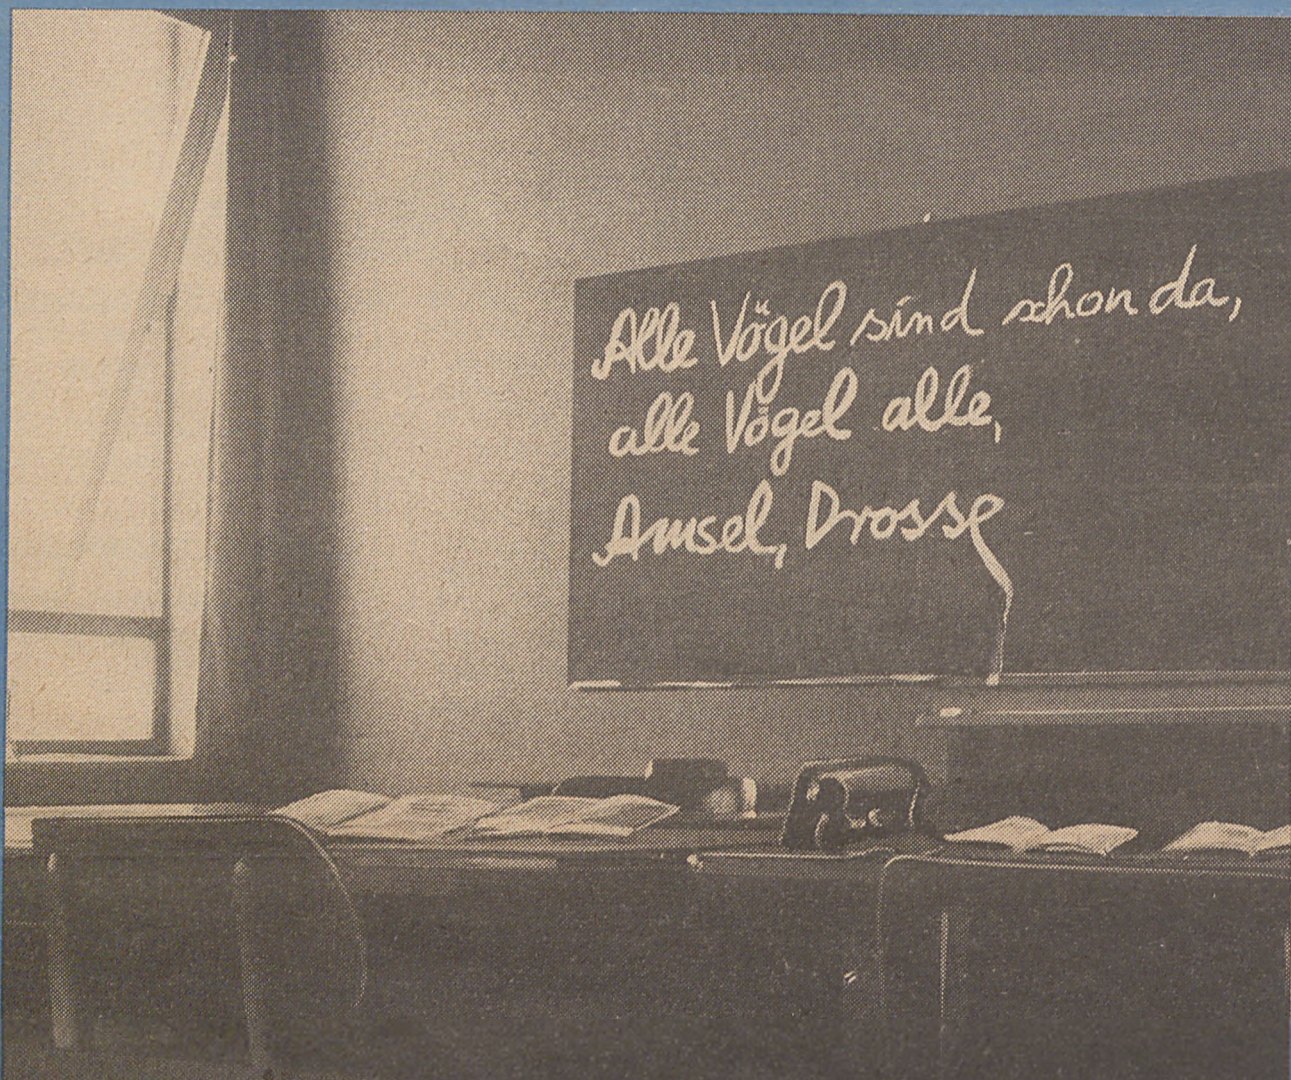 Alle Vögel sind schon da,
alle Vögel alle,
Amsel, Drosse